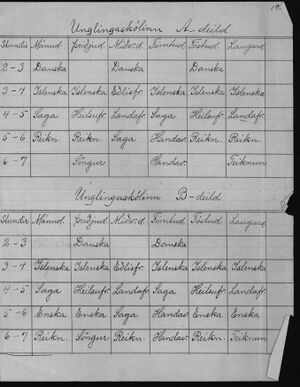 19.
Unglingaskólinn A-deild
Stundir Mánud. Þriðjud. Miðv.d. Fimtud. Föstud. Laugard.
2-3 Danska Danska Danska
3-4 Íslenska Íslenska Eðlisfr. Íslenska Íslenska Íslenska
4-5 Saga Heilsufr. Landafr. Saga Saga Landafr.
5-6 Reikn. Reikn. Saga Handav. Reikn. Reikn.
6-7 Söngur Handav. Teiknun
Unglingaskólinn B-deild
Stundir Mánud. Þriðjud. Miðv.d. Fimtud. Föstud. Laugard.
2-3 Danska Danska
3-4 Íslenska Íslenska Eðlisfr. Íslenska Íslenska Íslenska
4-5 Saga Heilsufr. Landafr. Saga Saga Landafr.
5-6 Enska Enska Saga Handav. Enska Enska
6-7 Reikn. Söngur Reikn. Handav. Reikn. Teiknun